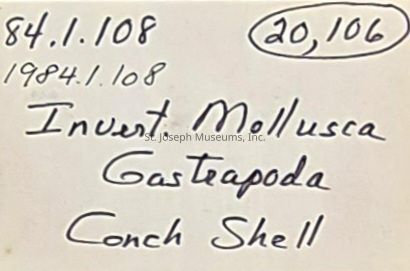 84.1.108 20,106
1984.1.108
Invert. Mollusca
St. Joseph Museums, Inc.
Gasteapoda
Conch Shell